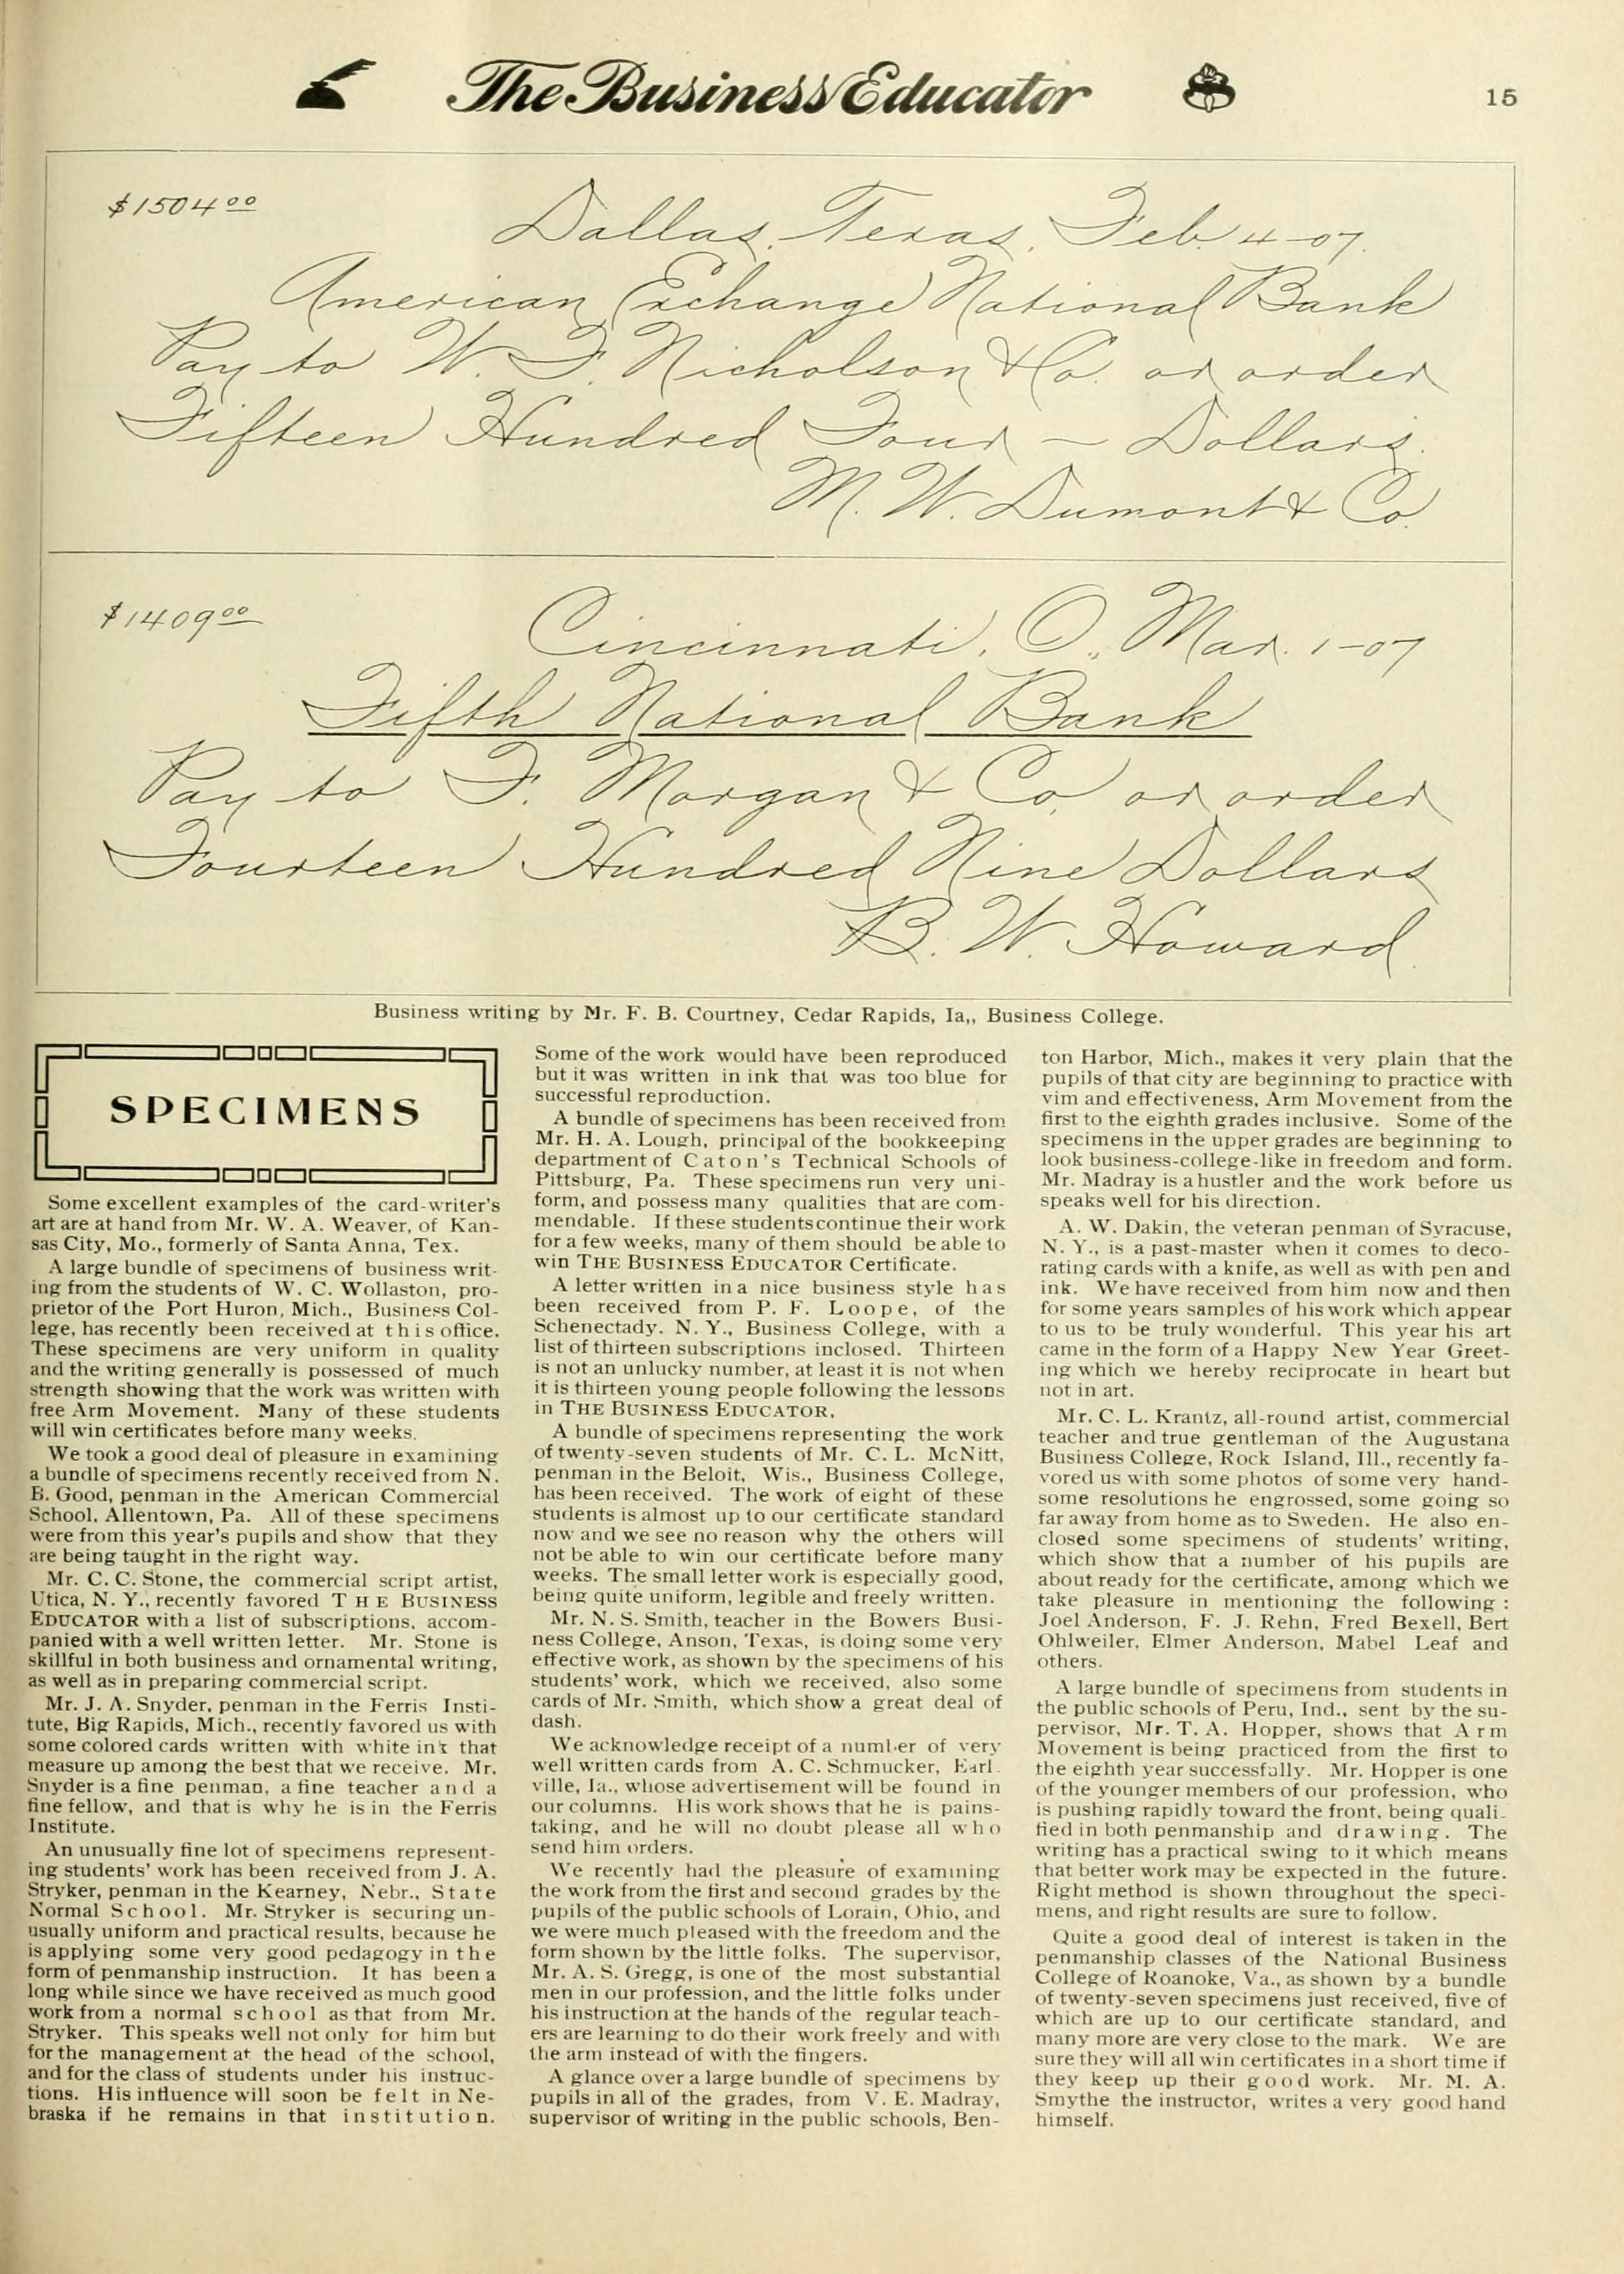 The Business Educator
15
$1504 00
Dallas, Texas, Feb. 4-07.
American Exchange National Bank
Pay to W. F. Nicholson & Co. or order
Fifteen Hundred Four ~ Dollars.
M. W. Dumont & Co.
$1409 00
Cincinnati, O., Mar. 1-07
Fifth National Bank
Pay to F. Morgan & Co. or order
Fourteen Hundred Nine Dollars
B. W. Howard.
Business writing by Mr. F. B. Courtney, Cedar Rapids, Ia,, Business College.
SPECIMENS
Some excellent examples of the card-writer's
art are at hand from Mr. W. A. Weaver, of Kan-
sas City, Mo., formerly of Santa Anna, Tex.
A large bundle of specimens of business writ-
ing from the students of W. C. Wollaston, pro-
prietor of the Port Huron, Mich., Business Col-
lege, has recently been received at this office.
These specimens are very uniform in quality
and the writing generally is possessed of much
strength showing that the work was written with
free Arm Movement. Many of these students
will win certificates before many weeks.
We took a good deal of pleasure in examining
a bundle of specimens recently received from N.
B. Good, penman in the American Commercial
School, Allentown, Pa. All of these specimens
were from this year's pupils and show that they
are being taught in the right way.
Mr. C. C. Stone, the commercial script artist,
Utica, N. Y., recently favored THE BUSINESS
EDUCATOR with a list of subscriptions, accom-
panied with a well written letter. Mr. Stone is
skillful in both business and ornamental writing,
as well as in preparing commercial script.
Mr. J. A. Snyder, penman in the Ferris Insti-
tute, Big Rapids, Mich., recently favored us with
some colored cards written with white ink that
measure up among the best that we receive. Mr.
Snyder is a fine penman, a fine teacher and a
fine fellow, and that is why he is in the Ferris
Institute.
An unusually fine lot of specimens represent-
ing students' work has been received from J. A.
Stryker, penman in the Kearney, Nebr., State
Normal School. Mr. Stryker is securing un-
usually uniform and practical results, because he
is applying some very good pedagogy in the
form of penmanship instruction. It has been a
long while since we have received as much good
work from a normal school as that from Mr.
Stryker. This speaks well not only for him but
for the management at the head of the school,
and for the class of students under his instruc-
tions. His influence will soon be felt in Ne-
braska if he remains in that institution.
Some of the work would have been reproduced
but it was written in ink that was too blue for
successful reproduction.
A bundle of specimens has been received from
Mr. H. A. Lough, principal of the bookkeeping
department of Caton's Technical Schools of
Pittsburg, Pa. These specimens run very uni-
form, and possess many qualities that are com-
mendable. If these students continue their work
for a few weeks, many of them should be able to
win THE BUSINESS EDUCATOR Certificate.
A letter written in a nice business style has
been received from P. F. Loope, of the
Schenectady. N. Y., Business College, with a
list of thirteen subscriptions inclosed. Thirteen
is not an unlucky number, at least it is not when
it is thirteen young people following the lessons
in THE BUSINESS EDUCATOR.
A bundle of specimens representing the work
of twenty-seven students of Mr. C. L. McNitt,
penman in the Beloit, Wis., Business College,
has been received. The work of eight of these
students is almost up to our certificate standard
now and we see no reason why the others will
not be able to win our certificate before many
weeks. The small letter work is especially good,
being quite uniform, legible and freely written.
Mr. N. S. Smith, teacher in the Bowers Busi-
ness College, Anson, Texas, is doing some very
effective work, as shown by the specimens of his
students' work, which we received, also some
cards of Mr. Smith, which show a great deal of
dash.
We acknowledge receipt of a number of very
well written cards from A. C. Schmucker, Earl-
ville, Ia., whose advertisement will be found in
our columns. His work shows that he is pains-
taking, and he will no doubt please all who
send him orders.
We recently had the pleasure of examining
the work from the first and second grades by the
pupils of the public schools of Lorain, Ohio, and
we were much pleased with the freedom and the
form shown by the little folks. The supervisor,
Mr. A. S. Gregg, is one of the most substantial
men in our profession, and the little folks under
his instruction at the hands of the regular teach-
ers are learning to do their work freely and with
the arm instead of with the fingers.
A glance over a large bundle of specimens by
pupils in all of the grades, from V. E. Madray,
supervisor of writing in the public schools, Ben-
ton Harbor, Mich., makes it very plain that the
pupils of that city are beginning to practice with
vim and effectiveness, Arm Movement from the
first to the eighth grades inclusive. Some of the
specimens in the upper grades are beginning to
look business-college-like in freedom and form.
Mr. Madray is a hustler and the work before us
speaks well for his direction.
A. W. Dakin, the veteran penman of Syracuse,
N. Y., is a past-master when it comes to deco-
rating cards with a knife, as well as with pen and
ink. We have received from him now and then
for some years samples of his work which appear
to us to be truly wonderful. This year his art
came in the form of a Happy New Year Greet-
ing which we hereby reciprocate in heart but
not in art.
Mr. C. L. Krantz, all-round artist, commercial
teacher and true gentleman of the Augustana
Business College, Rock Island, Ill., recently fa-
vored us with some photos of some very hand-
some resolutions he engrossed, some going so
far away from home as to Sweden. He also en-
closed some specimens of students' writing,
which show that a number of his pupils are
about ready for the certificate, among which we
take pleasure in mentioning the following :
Joel Anderson, F. J. Rehn, Fred Bexell, Bert
Ohlweiler, Elmer Anderson, Mabel Leaf and
others.
A large bundle of specimens from students in
the public schools of Peru, Ind., sent by the su-
pervisor, Mr. T. A. Hopper, shows that Arm
Movement is being practiced from the first to
the eighth year successfully. Mr. Hopper is one
of the younger members of our profession, who
is pushing rapidly toward the front, being quali-
fied in both penmanship and drawing. The
writing has a practical swing to it which means
that better work may be expected in the future.
Right method is shown throughout the speci-
mens, and right results are sure to follow.
Quite a good deal of interest is taken in the
penmanship classes of the National Business
College of Roanoke, Va., as shown by a bundle
of twenty-seven specimens just received, five of
which are up to our certificate standard, and
many more are very close to the mark. We are
sure they will all win certificates in a short time if
they keep up their good work. Mr. M. A.
Smythe the instructor, writes a very good hand
himself.